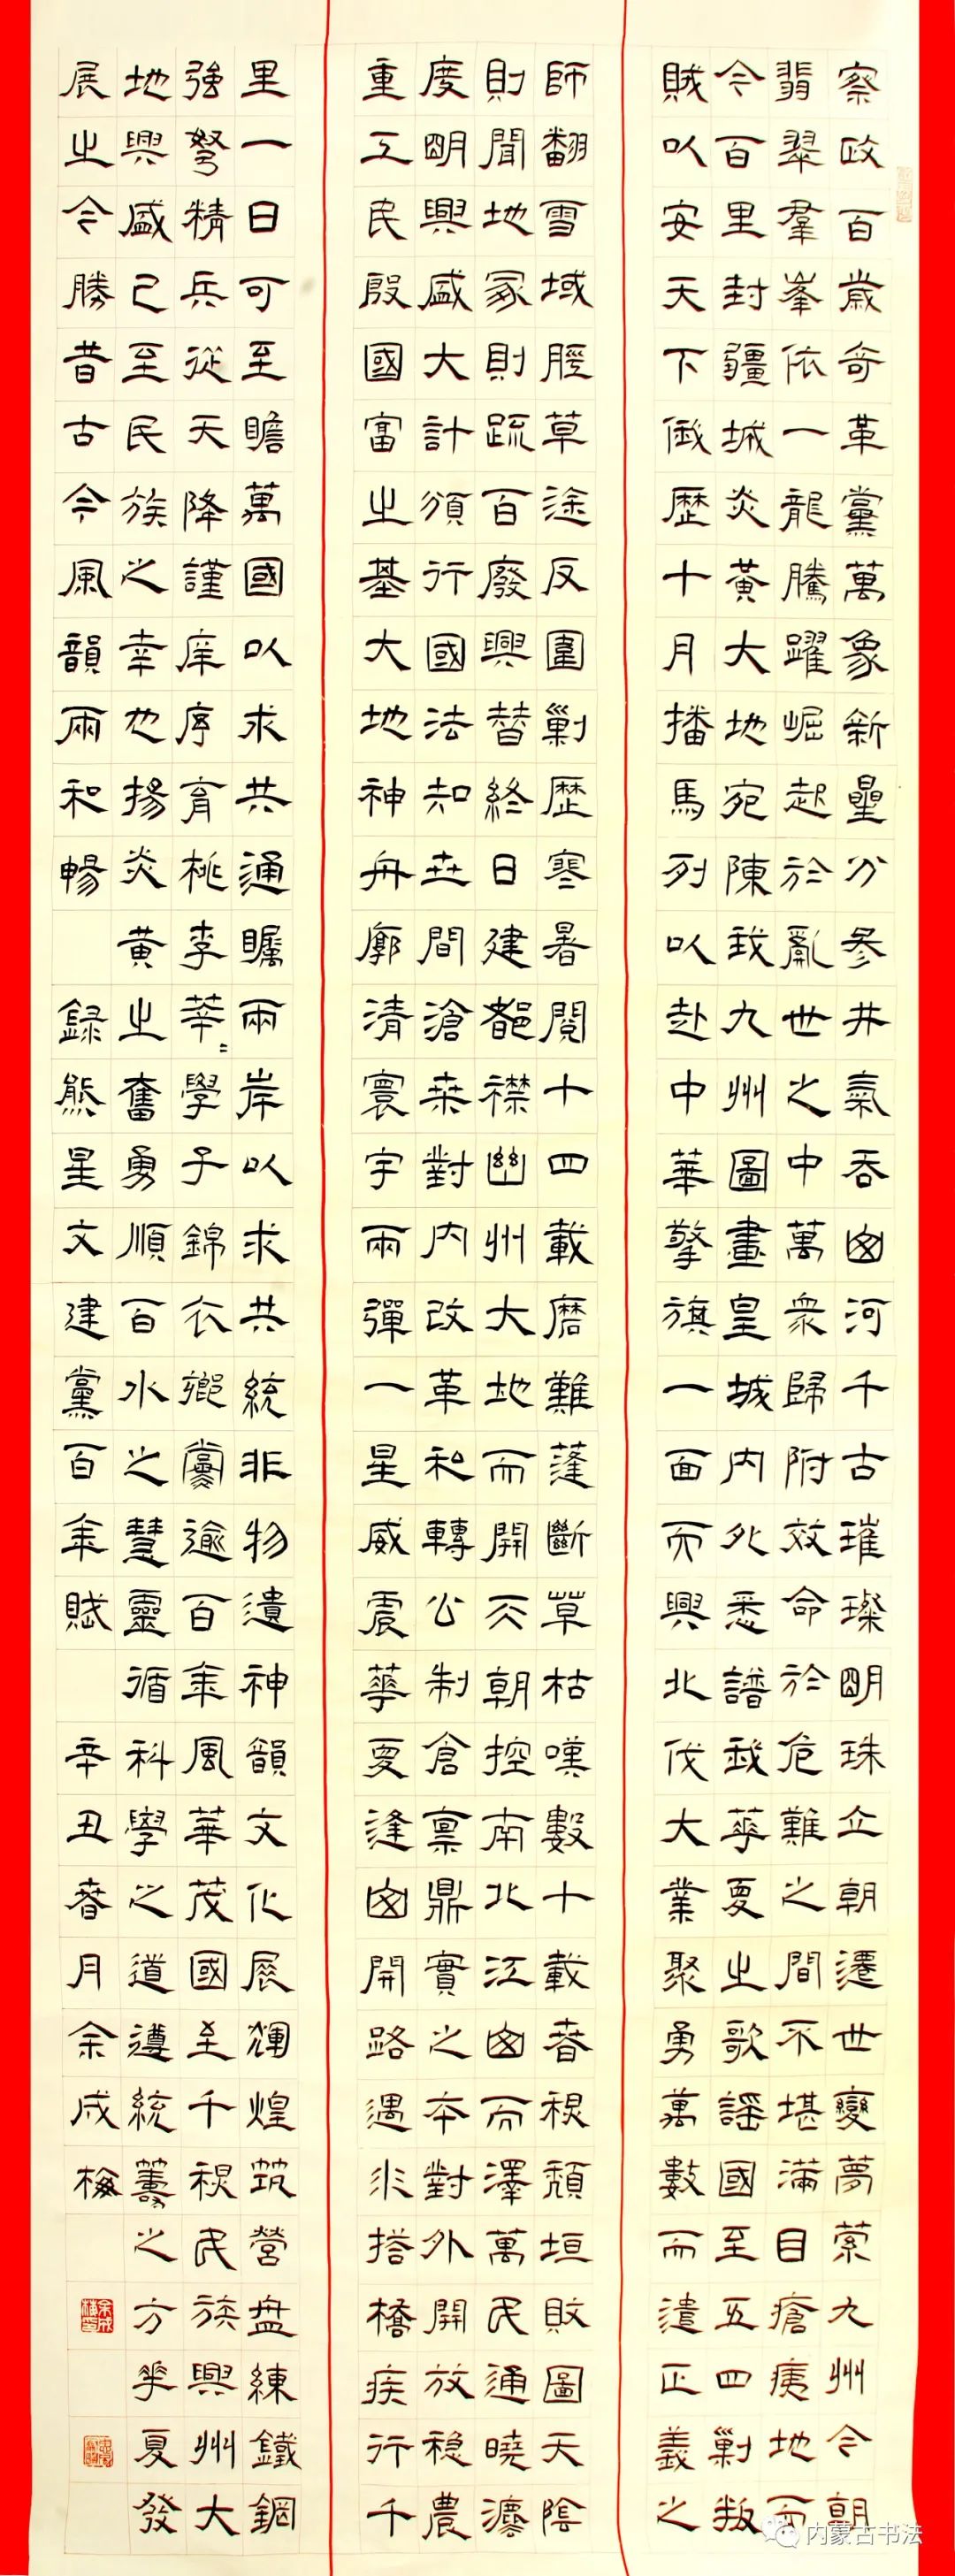 察政百歲奇革黨萬象新疊分參井氣吞幽河千古璀璨明珠立朝遷世變夢縈九州今朝
翡翠羣峯依一龍騰躍崛起於亂世之中萬眾歸附效命於危難之間不堪滿目瘡痍地而
今百里封疆城炎黃大地宛陳我九州圖畫皇城內外悉譜我華夏之歌謠國至五四剿叛
賊以安天下儆歷十月播馬列以赴中華擎旗一面而興北伐大業聚勇萬數而遣正義之
師翻雪域脛草途反圍剿歷寒暑閱十四載磨難蓬斷草枯嘆數十載春祝頹垣敗圖天陰
則聞地冢則疏百廢興替終日建都襟幽州大地而開天朝控南北江幽而澤萬民通曉瀍
度明興盛大計頒行國法知世間滄桑對內改革和轉公制倉稟鼎實之本對外開放穩農
重工民殷國富之基大地神舟廓清寰宇兩彈一星威震華夏逢幽開路遇水搭橋疾行千
里一日可至瞻萬國以求共通矚兩岸以求共統非物遺神韻文化展輝煌筑營盤練鐵鋼
強弩精兵從天降謹庠序育桃李莘=學子錦衣鄉黨逾百年風華茂國至千祝民族興州大
地興盛已至民族之幸也揚炎黃之奮勇順百水之慧靈循科學之道遵統籌之方華夏發
展之今勝昔古今風韻兩和暢
錄熊星文建黨百年賦
辛丑春月余成梅
內蒙古书法